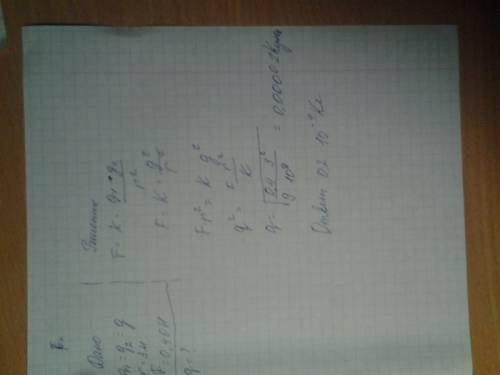 Дано
q₁ = q₂ = q
r = 3м
F = 0,4 Н
q = ?
Решение
F = k · q₁ · q₂ / r²
F = k · q² / r²
F r² = k q²
q² = / k
q = √ 0,4 3² / 9 10⁹ = Кулон
Ответ 0.2 10 Кл